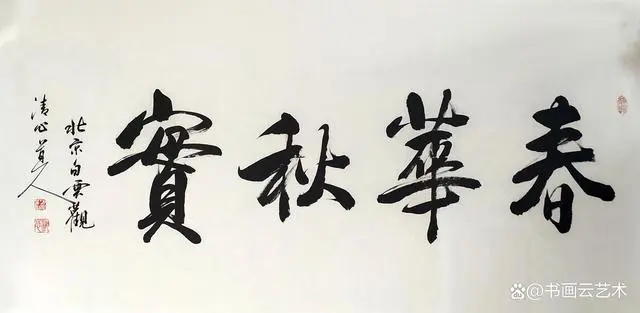 春華秋實
北京白雲觀
清心道人
@书画云艺术